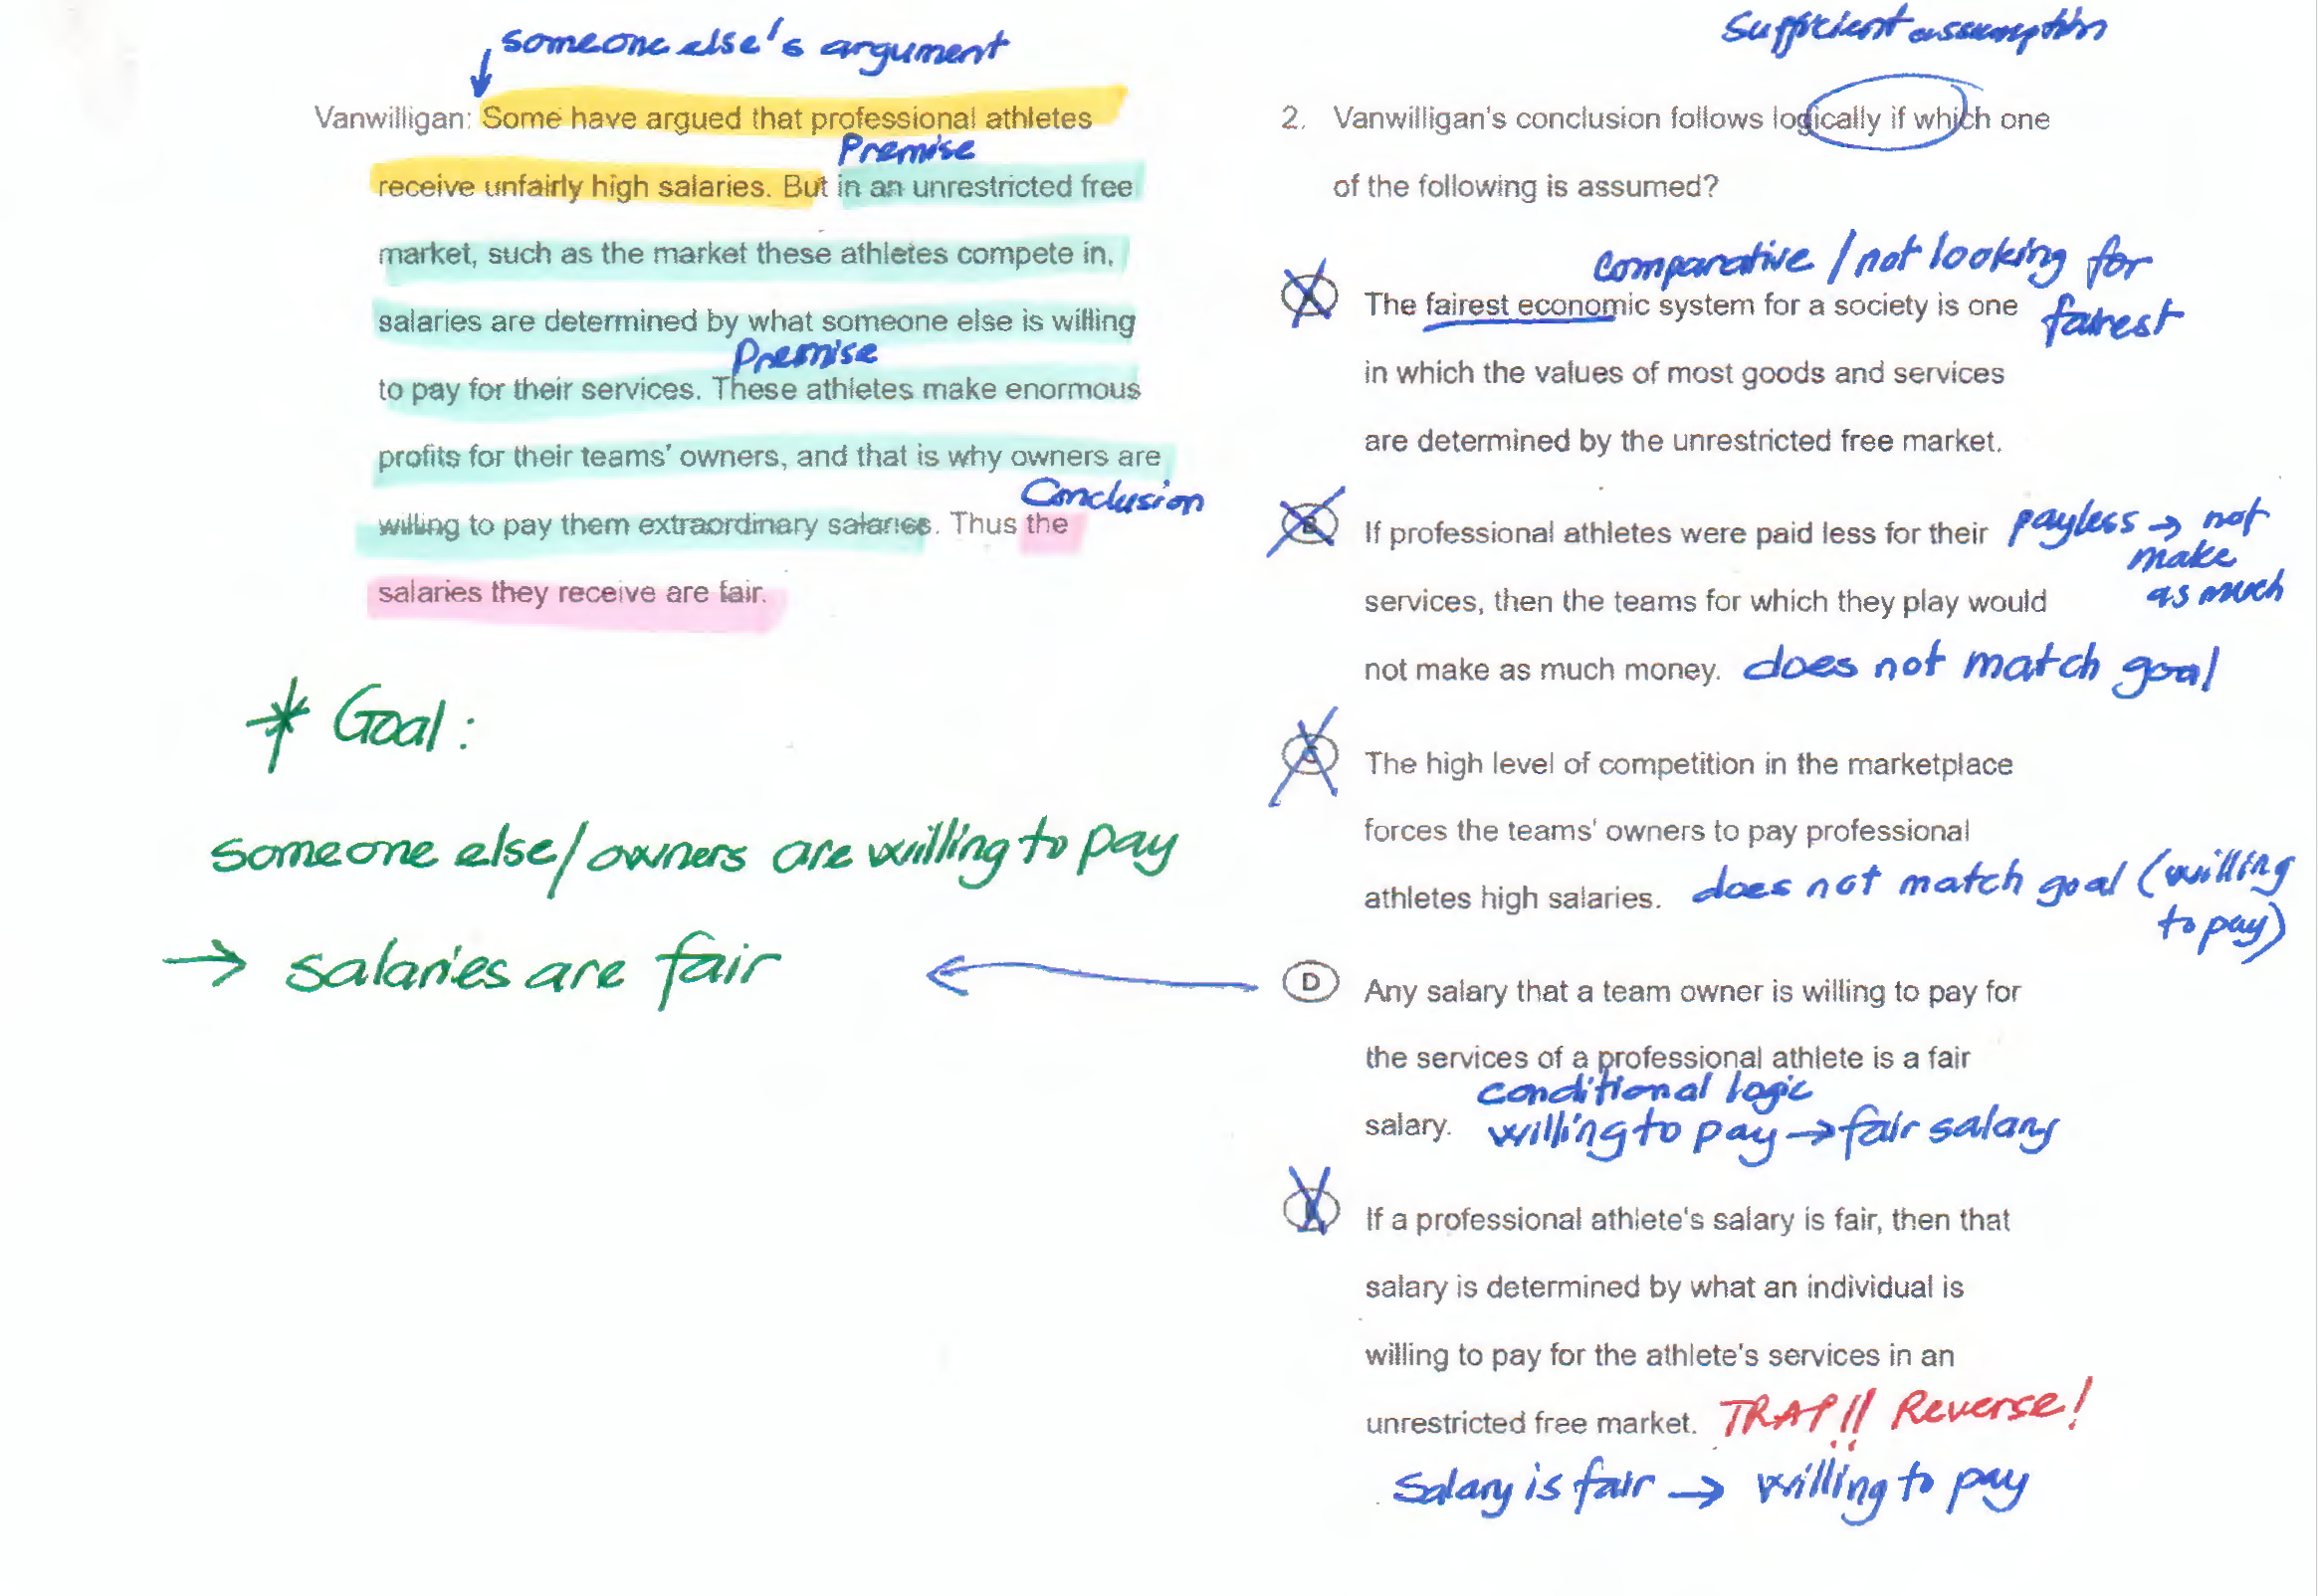 someone else's argument
Vanwilligan: Some have argued that professional athletes
Premise
receive unfairly high salaries. But in an unrestricted free
market, such as the market these athletes compete in,
salaries are determined by what someone else is willing
Premise
to pay for their services. These athletes make enormous
profits for their teams' owners, and that is why owners are
Conclusion
willing to pay them extraordinary salaries. Thus the
salaries they receive are fair.
* Goal:
someone else/owners are willing to pay
→ salaries are fair
Sufficient assumption
2. Vanwilligan's conclusion follows logically if which one
of the following is assumed?
comparative / not looking for
fairest
A The fairest economic system for a society is one
in which the values of most goods and services
are determined by the unrestricted free market.
B If professional athletes were paid less for their
pay less → not
make
as much
services, then the teams for which they play would
not make as much money. does not match goal
C The high level of competition in the marketplace
forces the teams' owners to pay professional
athletes high salaries. does not match goal (willing
to pay)
D Any salary that a team owner is willing to pay for
the services of a professional athlete is a fair
conditional logic
salary. willing to pay → fair salary
E If a professional athlete's salary is fair, then that
salary is determined by what an individual is
willing to pay for the athlete's services in an
unrestricted free market. TRAP!! Reverse!
Salary is fair → willing to pay